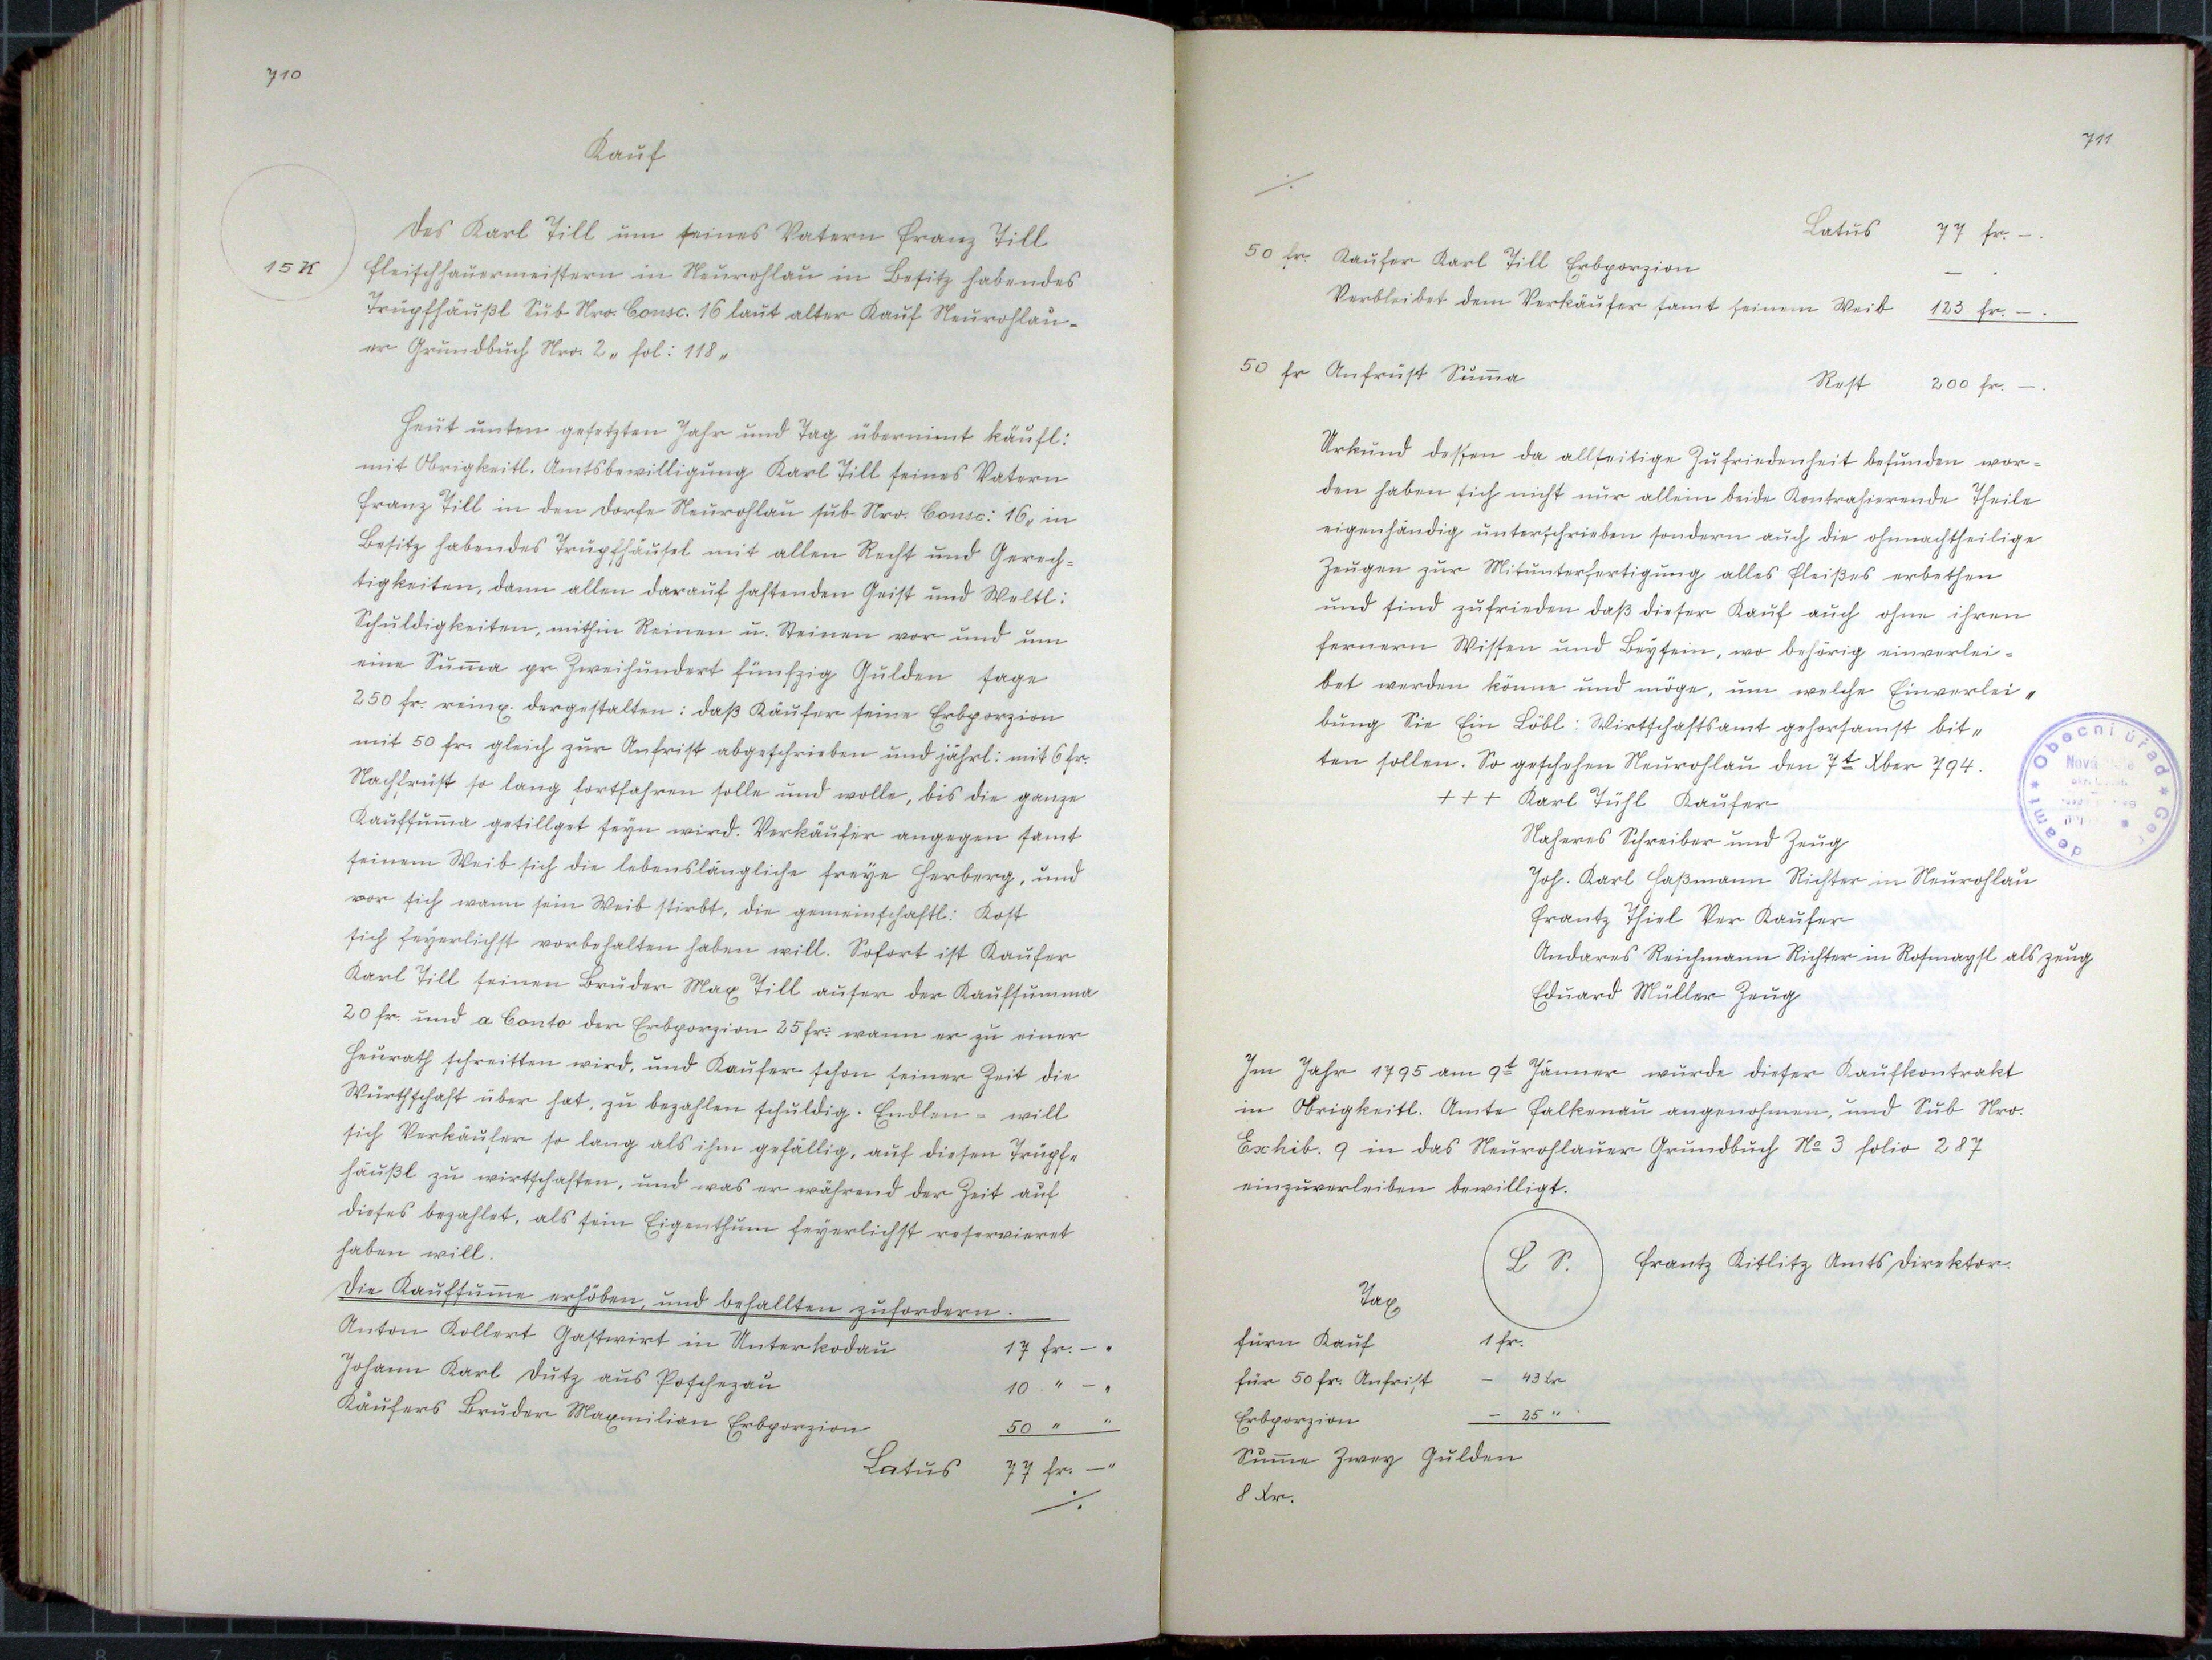 710
Kauf
15 K
des Karl Till um seines Vatern Franz Till
Fleischhauermeistern in Neurohlau in Besitz habendes
Trupfhäußl Sub Nro. Consc. 16 laut alter Kauf Neurohlau-
er Grundbuch Nro. 2„ fol: 118„
Heut unten gesetzten Jahr und Tag übernimt käufl:
mit Obrigkeitl. Amtsbewilligung Karl Till seines Vatern
Franz Till in den Dorfe Neurohlau sub Nro. Consc: 16„ in
Besitz habendes Trupfhäusel mit allen Recht und Gerech-
tigkeiten, dann allen darauf haftenden Geist und Weltl:
Schuldigkeiten, mithin Reinen u. Steinen vor und um
eine Sum̄a pr Zweihundert fünfzig Gulden sage
250 fr. reinx. dergestalten: daß Käufer seine Erbporzion
mit 50 fr. gleich zur Anfrist abgeschrieben und jährl: mit 6 fr.
Nachfrüst so lang fortfahren solle und wolle, bis die ganze
Kaufsum̄a getillget seyn wird. Verkäufer angegen samt
seinem Weib sich die lebenslängliche freye Herberg, und
vor sich wann sein Weib stirbt, die gemeinschaftl: Kost
sich feyerlichst vorbehalten haben will. Sofort ist Kaufer
Karl Till seinen Bruder Max Till auser der Kaufsumma
20 fr. und a Conto der Erbporzion 25 fr: wann er zu einer
Heurath schreitten wird, und Kaufer schon seiner Zeit die
Würthschaft über hat, zu bezahlen schuldig. Endlen - will
sich Verkäufer so lang als ihm gefällig, auf diesen Trupf„
häußl zu wirtschaften, und was er während der Zeit auf
dieses bezahlet, als sein Eigenthum feyerlichst reservieret
haben will.
Die Kaufsum̄e erhöben, und behallten zufordern.
Anton Kollert Gastwirt in Unterkodau 17 fr. — „
Johann Karl Dutz aus Poschezau 10 . " — „
Käufers Bruder Maxmilian Erbporzion 50 " "
Latus 77 fr. — "
./.
711
./.
Latus 77 fr. —.
50 fr. Kaufer Karl Till Erbporzion — .
Verbleibet dem Verkäufer samt seinem Weib 123 fr. —.
50 fr Anfrüst Sum̄a Rest 200 fr. —.
Urkund dessen da allseitige Zufriedenheit befunden wor-
den haben sich nicht nur allein beide Kontrahierende Theile
eigenhändig unterschrieben sondern auch die ohnnachtheilige
Zeugen zur Mitunterfertigung alles Fleißes erbethen
und sind zufrieden daß dieser Kauf auch ohne ihren
fernern Wissen und Beysein, wo behörig einverlei-
bet werden könne und möge, um welche Einverlei„
bung Sie Ein Löbl: Wirtschaftsamt gehorsamst bit„
ten sollen. So geschehen Neurohlau den 7t Xber 794.
+++ Karl Tühl Kaufer
Naheres Schreiber und Zeug
Joh. Karl Haßmann Richter in Neurohlau
Frantz Thiel Ver Kaufer
Andares Reichmann Richter in Rosmaysl als zeug
Eduard Müller Zeug
Obecní úřad
Nová
Im Jahr 1795 am 9t Jänner wurde dieser Kaufkontrakt
in Obrigkeitl. Amte Falkenau angenohmen, und Sub Nro.
Exhib. 9 in das Neurohlauer Grundbuch No 3 folio 287
einzuverleiben bewilligt.
L S. Frantz Kitlitz Amts Direktor.
Tax
fürn Kauf 1 fr.
für 50 fr. Anfrist — 43 Xr
Erbporzion — 25 "
Sum̄e Zwey Gulden
8 Xr.